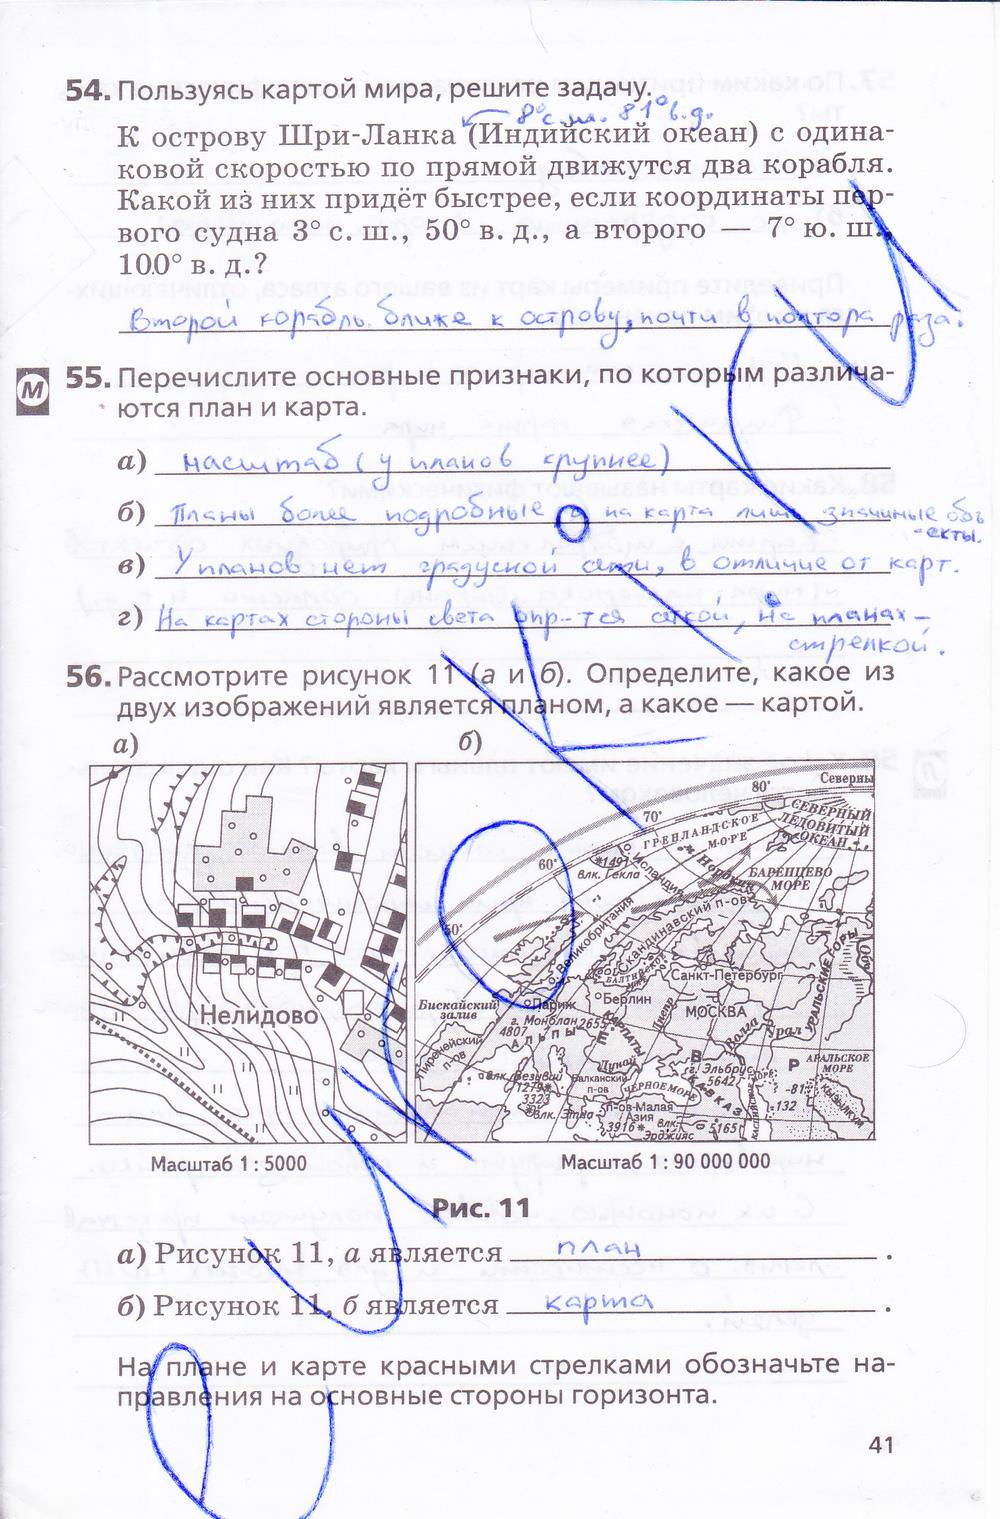 54. Пользуясь картой мира, решите задачу.
8° с.ш. 81° в.д.
К острову Шри-Ланка (Индийский океан) с одина-
ковой скоростью по прямой движутся два корабля.
Какой из них придёт быстрее, если координаты пер-
вого судна 3° с. ш., 50° в. д., а второго — 7° ю. ш.,
100° в. д.?
Второй корабль ближе к острову, почти в полтора раза.
М
55. Перечислите основные признаки, по которым различа-
ются план и карта.
а) масштаб (у планов крупнее)
б) Планы более подробные, а на карта лишь значимые объ
-екты.
в) У планов нет градусной сети, в отличие от карт.
г) На картах стороны света опр-тся сеткой, на планах –
стрелкой.
56. Рассмотрите рисунок 11 (а и б). Определите, какое из
двух изображений является планом, а какое — картой.
а) б)
Нелидово
Северны
80°
70°
60°
50°
СЕВЕРНЫЙ
ЛЕДОВИТЫЙ
ОКЕАН
ГРЕНЛАНДСКОЕ
МОРЕ
1491
влк. Гекла
о. Исландия
м. Нордкин
БАРЕНЦЕВО
МОРЕ
Скандинавский п-ов
о. Великобритания
БАЛТИЙСКОЕ
МОРЕ
Санкт-Петербург
УРАЛЬСКИЕ ГОРЫ
Обь
Бискайский
залив
Париж
Берлин
МОСКВА
г. Монблан
4807
2655
АЛЬПЫ
КАРПАТЫ
Днепр
Волга
Урал
Пиренейский
п-ов
Дунай
г. Эльбрус
5642
КАВКАЗ
Р
АРАЛЬСКОЕ
МОРЕ
влк. Везувий
1279
3323
влк. Этна
Балканский
п-ов
ЧЕРНОЕ МОРЕ
п-ов Малая
Азия
3916
влк.
Эрджияс
5165
-81
-132
Кызылкум
Масштаб 1 : 5000
Масштаб 1 : 90 000 000
Рис. 11
а) Рисунок 11, а является план .
б) Рисунок 11, б является карта .
На плане и карте красными стрелками обозначьте на-
правления на основные стороны горизонта.
41